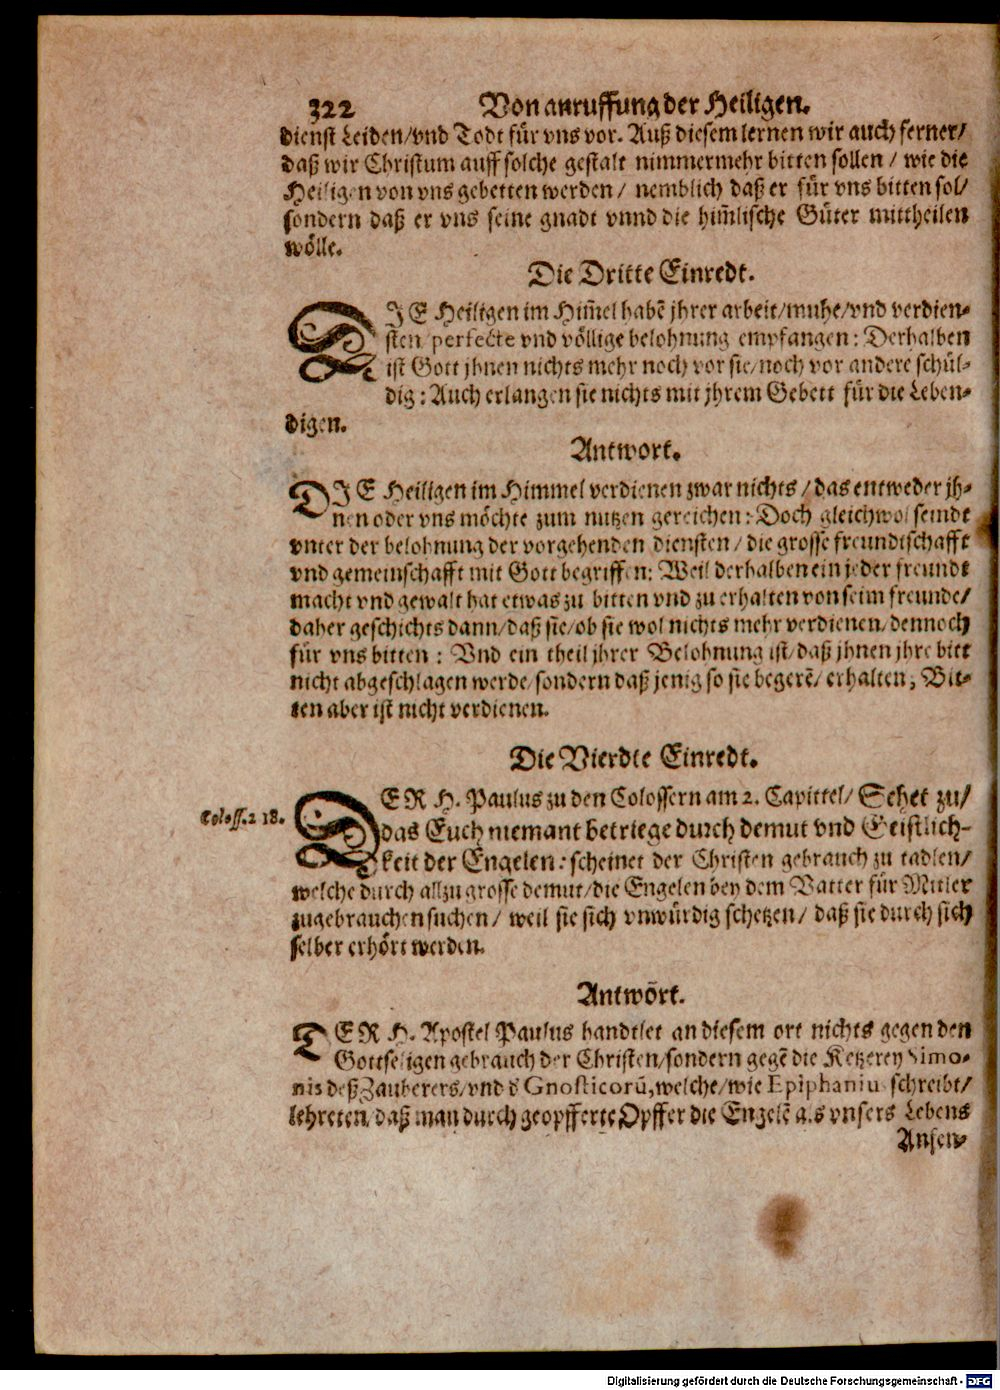 322 Von anruffung der Heiligen.
dienst Leiden/vnd Todt für vns vor. Auß diesem lernen wir auch ferner/
daß wir Christum auff solche gestalt nimmermehr bitten sollen / wie die
Heiligen von vns gebetten werden / nemblich daß er für vns bitten sol/
sondern daß er vns seine gnadt vnnd die him̃lische Güter mittheilen
wölle.
Die Dritte Einredt.
DIE Heiligen im Him̃el habẽ jhrer arbeit/muhe/vnd verdien-
sten perfecte vnd völlige belohnung empfangen: Derhalben
ist Gott jhnen nichts mehr noch vor sie/noch vor andere schül-
dig: Auch erlangen sie nichts mit jhrem Gebett für die Leben-
digen.
Antwort.
DIE Heiligen im Himmel verdienen zwar nichts / das entweder jh-
nen oder vns möchte zum nutzen gereichen: Doch gleichwol seindt
vnter der belohnung der vorgehenden diensten / die grosse freundtschafft
vnd gemeinschafft mit Gott begriffen: Weil derhalben ein jeder freundt
macht vnd gewalt hat etwas zu bitten vnd zu erhalten von seim freunde/
daher geschichts dann/daß sie/ob sie wol nichts mehr verdienen/dennoch
für vns bitten : Vnd ein theil jhrer Belohnung ist/daß jhnen jhre bitt
nicht abgeschlagen werde/sondern daß jenig so sie begerẽ/erhalten; Bit-
ten aber ist nicht verdienen.
Die Vierdte Einredt.
Coloss.2 18.
DER H. Paulus zu den Colossern am 2. Capittel/ Sehet zu/
das Euch niemant betriege durch demut vnd Geistlich-
keit der Engelen: scheinet der Christen gebrauch zu tadlen/
welche durch allzu grosse demut/die Engelen bey dem Vatter für Mitler
zugebrauchen suchen/ weil sie sich vnwürdig schetzen/ daß sie durch sich
selber erhört werden.
Antwort.
DER H. Apostel Paulus handtlet an diesem ort nichts gegen den
Gottseligen gebrauch der Christen/sondern gegẽ die Ketzerey Simo-
nis deß Zauberers/vnd d' Gnosticorũ,welche/wie Epiphanius schreibt/
lehreten/daß man durch geopfferte Opffer die Engelẽ als vnsers Lebens
Anfen-
Digitalisierung gefördert durch die Deutsche Forschungsgemeinschaft - DFG